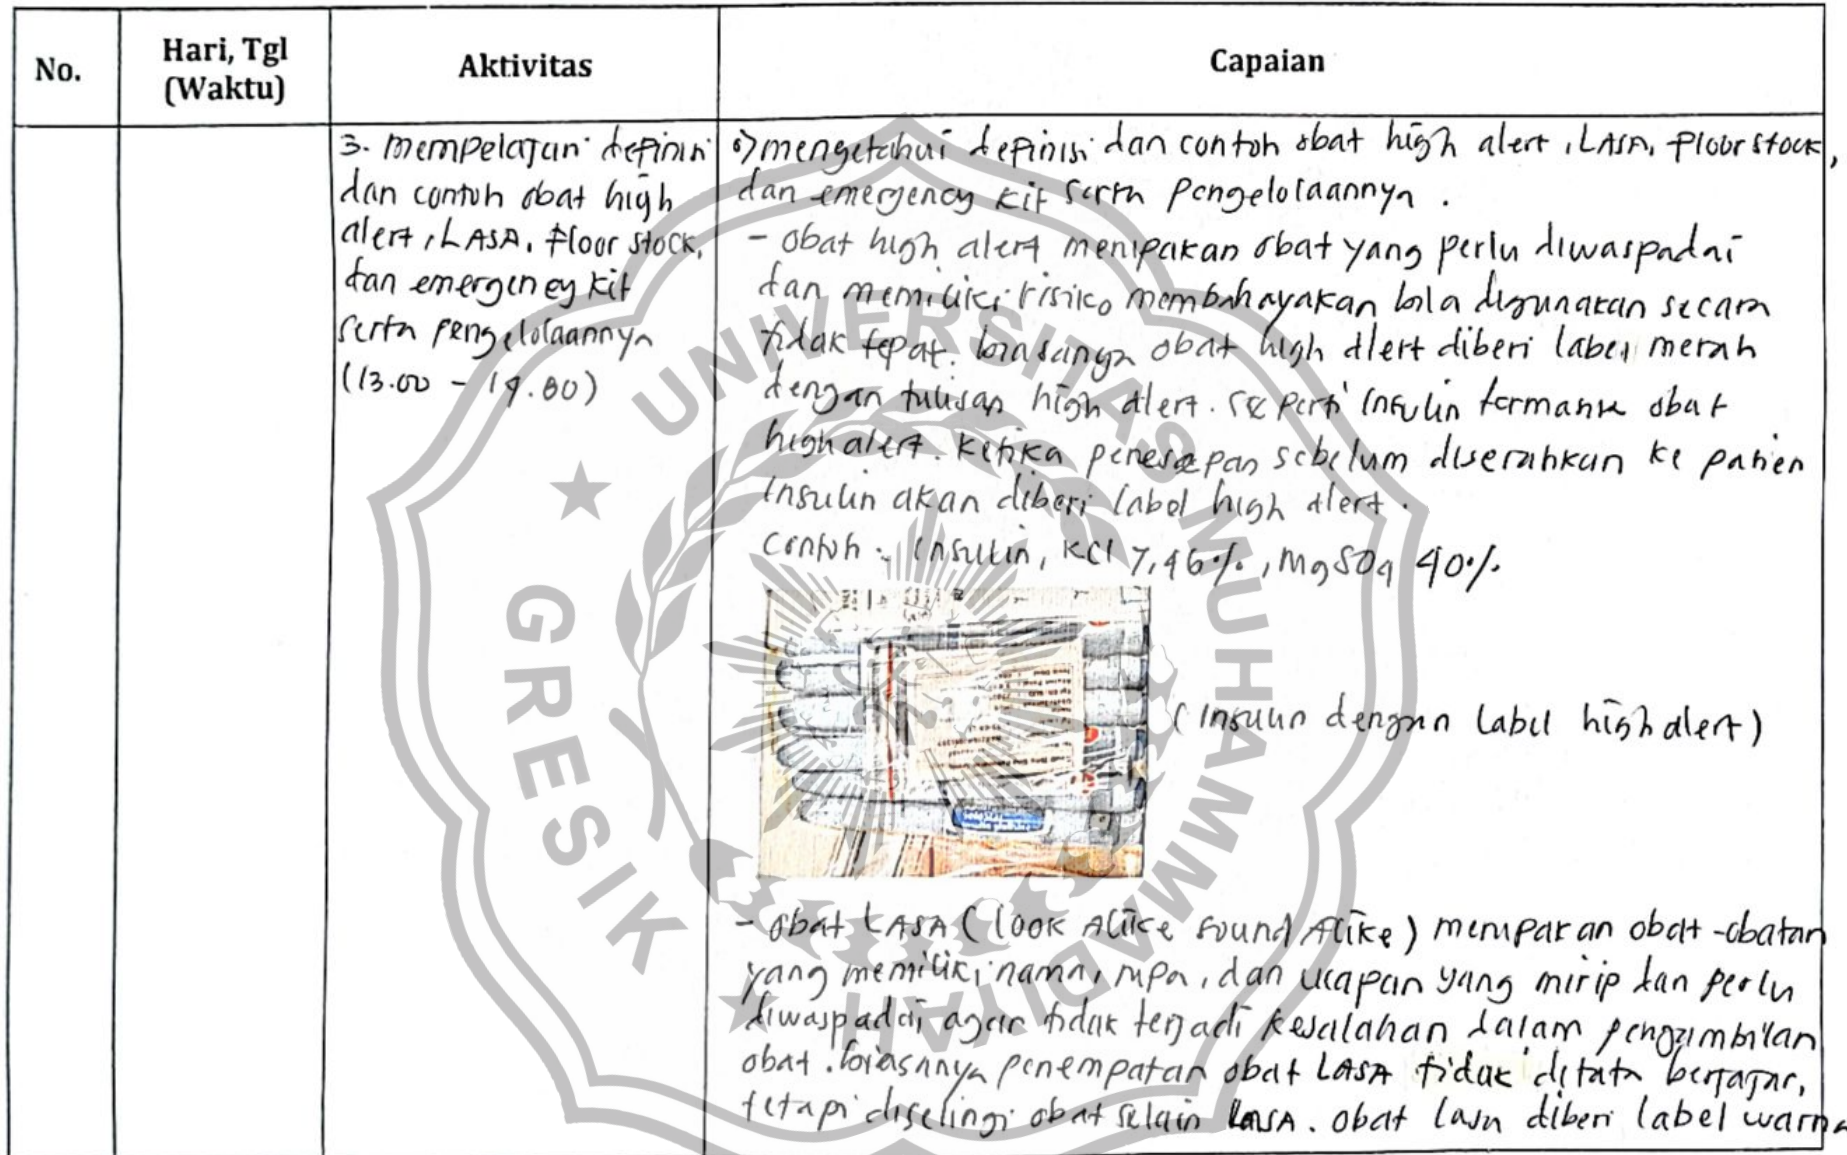 No.
Hari, Tgl
(Waktu)
Aktivitas
Capaian
3. mempelajari definisi
dan contoh obat high
alert, LASA, floor stock,
dan emergency kit
serta pengelolaannya
(13.00 -
•) mengetahui definisi dan contoh obat high alert, LASA, floor stock,
dan emergency kit serta pengelolaannya.
- obat high alert merupakan obat yang perlu diwaspadai
dan memiliki risiko membahayakan bila digunakan secara
tidak tepat. biasanya obat high alert diberi label merah
dengan tulisan high alert. seperti insulin termasuk obat
high alert. ketika peneresepan sebelum diserahkan ke pasien
insulin akan diberi label high alert.
contoh : insulin, KCl 7,46%, MgSO4 40%
(insulin dengan label high alert)
- obat LASA (look Alike sound Alike) merupakan obat-obatan
yang memiliki nama, rupa, dan ucapan yang mirip dan perlu
diwaspadai agar tidak terjadi kesalahan dalam pengambilan
obat. biasanya penempatan obat LASA tidak ditata berjajar,
tetapi diselingi obat selain LASA. obat lasa diberi label warna
UNIVERSITAS MUHAMMADIYAH
GRESIK